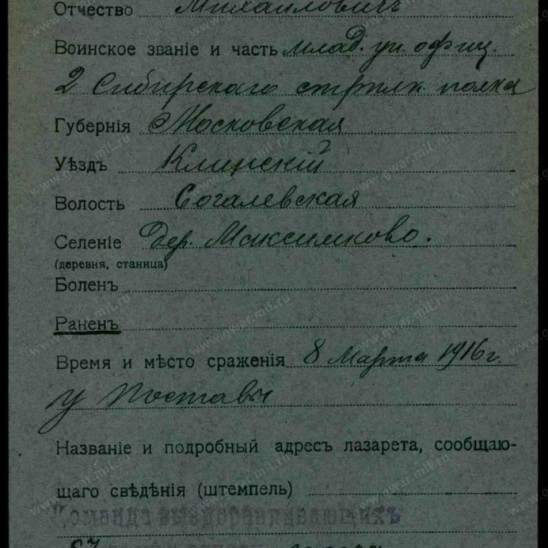 Отчество Михаиловичъ
Воинское званіе и часть млад. ун. офиц.
2 Сибирскаго стрѣлк. полка
Губернія Московская
Уѣздъ Клинскій
Волость Согалевская
Селеніе дер. Максимково.
(деревня, станица)
Боленъ
Раненъ
Время и мѣсто сраженія 8 Марта 1916 г.
у Поставы
Названіе и подробный адресъ лазарета, сообщаю-
щаго свѣдѣнія (штемпель)
Команда выздоравливающихъ